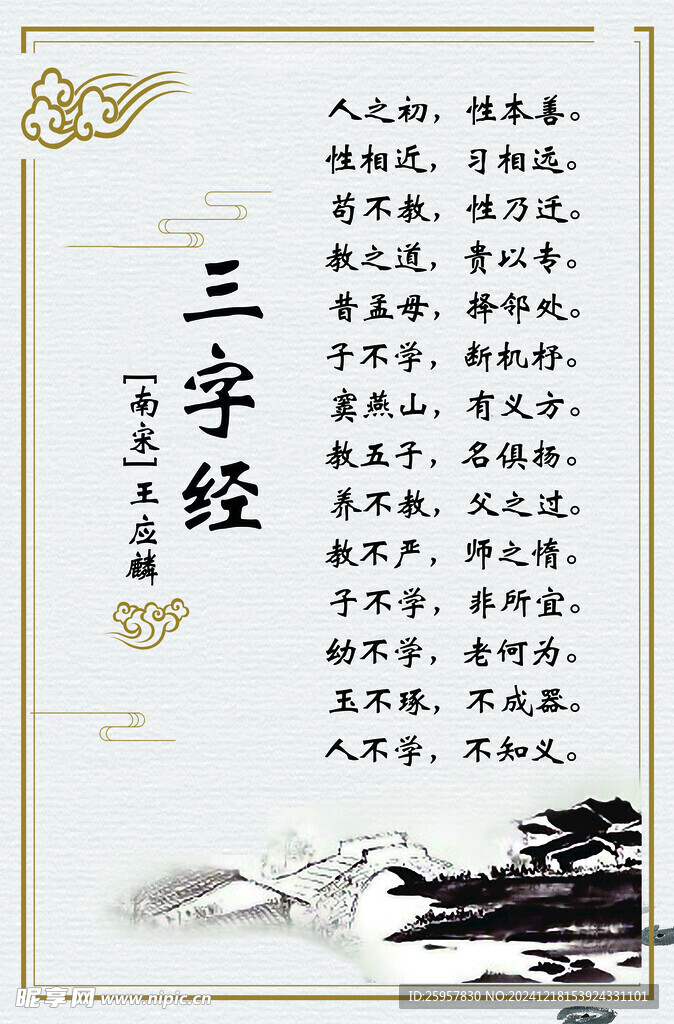 三字经
[南宋]王应麟
人之初，性本善。
性相近，习相远。
苟不教，性乃迁。
教之道，贵以专。
昔孟母，择邻处。
子不学，断机杼。
窦燕山，有义方。
教五子，名俱扬。
养不教，父之过。
教不严，师之惰。
子不学，非所宜。
幼不学，老何为。
玉不琢，不成器。
人不学，不知义。
昵享网 www.nipic.cn
ID:25957830 NO:20241218153924331101